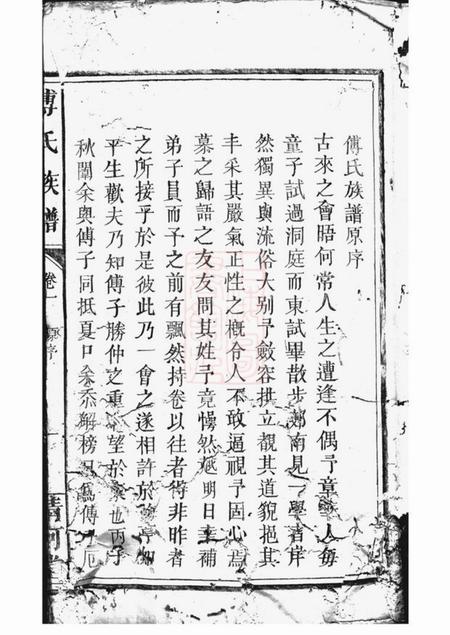 傅氏族譜原序
古來之會晤何常人生之遭逢不偶予章人毎
童子試過洞庭而東試畢散步郊南見一學者岸
然獨異與流俗大别予斂容拱立觀其道貌挹其
丰采其嚴氣正性之概令人不敢逼視予固心焉
慕之歸語之友友問其姓予竟懜然越明日主補
弟子員而予之前有飄然持卷以往者得非昨者
之所接乎於是彼此乃一會之遂相許於
平生歡夫乃知傅子勝仲之重望於也丙子
秋闈余與傅子同抵夏口余忝解榜傅厄
傅氏族譜
卷一
原序